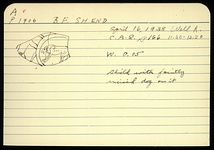 A
P 1906 B.F. SHEND
April 16, 1938 Well A.
C.A.G. p166 11.50-12.50
W. 0.15
Shield with faintly
incised dog on it